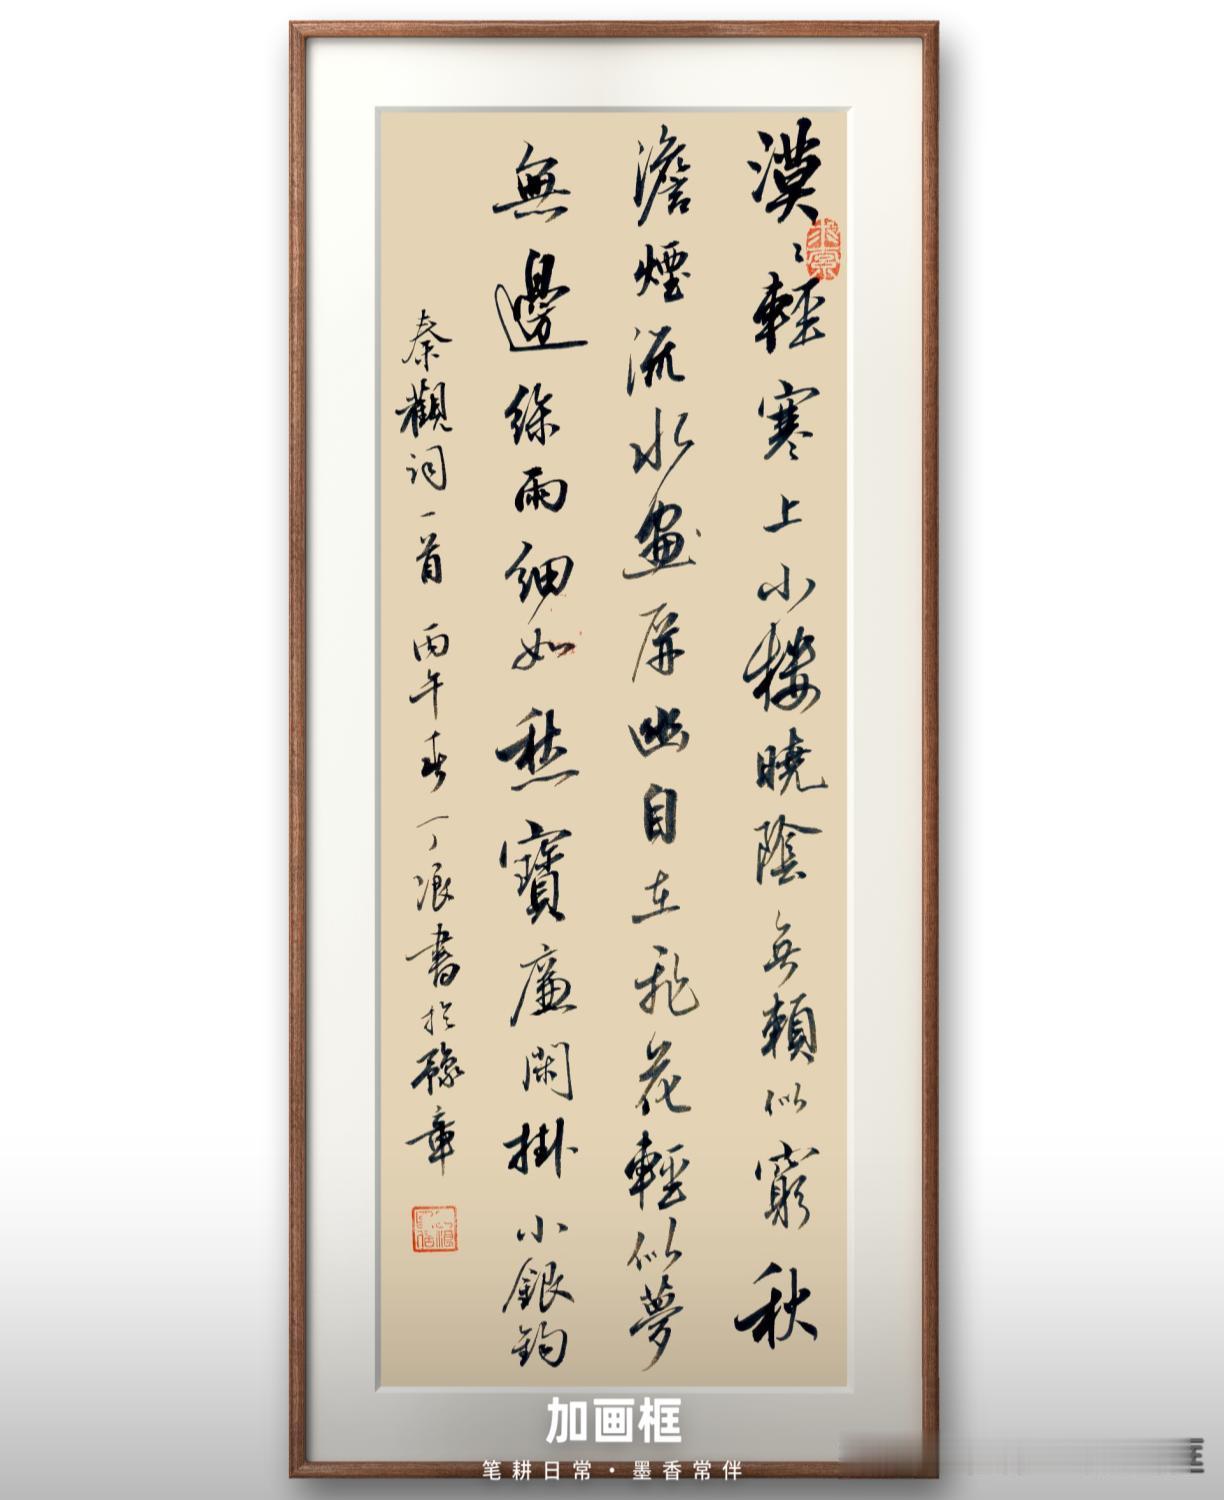 漠〻輕寒上小樓曉陰無賴似窮秋
澹煙流水畫屏幽自在飛花輕似夢
無邊絲雨細如愁寶簾閑掛小銀鈎
秦觀詞一首 丙午春 丁浪書於豫章
加画框
笔耕日常·墨香常伴